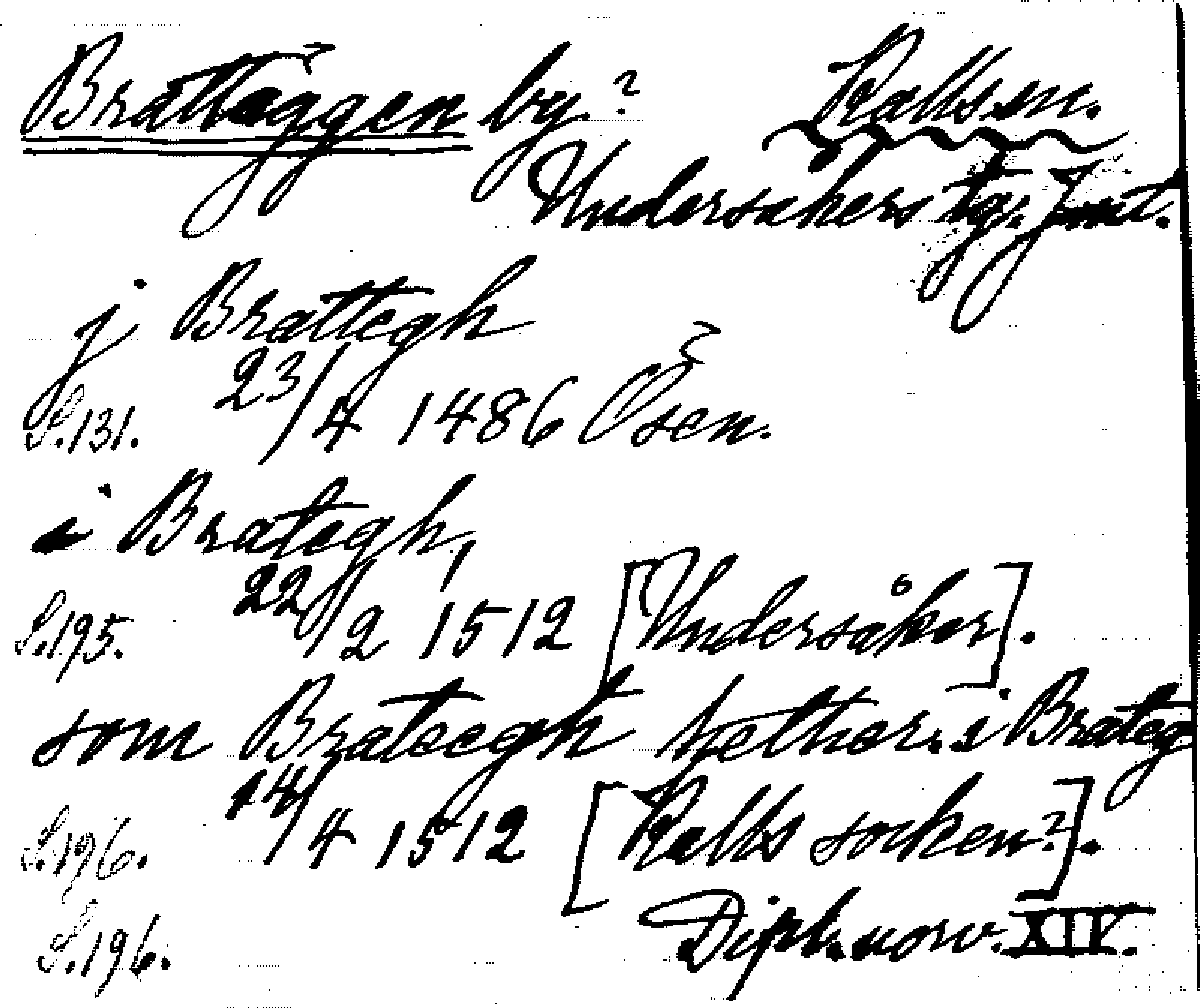 Bratteggen by? Kalls sn.
Undersåkers tg. Jmt.
j Brattegh
S. 131. 23/4 1486 Osen.
i Brategh,
S. 195. 22/2 1512 [Undersåker].
som Brateegh hether. i Brateg
S. 196. 14/4 1512 [Kalls socken?].
S. 196. Dipl. norv. XIV.